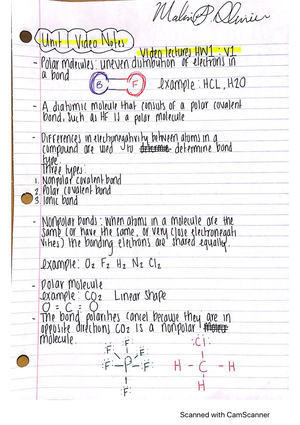 Unit 1 Video Notes
Video lectures HW1: V1
- Polar molecules: uneven distribution of electrons in
a bond
B F example: HCL, H2O
- A diatomic molecule that consists of a polar covalent
bond, such as HF is a polar molecule
- Differences in electronegativity between atoms in a
compound are used to determine bond
type.
Three types:
1. Nonpolar covalent bond
2. Polar covalent bond
3. Ionic bond
- Nonpolar bonds: when atoms in a molecule are the
same (or have the same, or very close electronegati
vities) the bonding electrons are shared equally.
example: O2 F2 H2 N2 Cl2
- polar molecule
example: CO2 Linear shape
O = C = O
- The bond polarities cancel because they are in
opposite directions CO2 is a nonpolar
molecule.
F F F P F F
Cl
H - C - H
H
Scanned with CamScanner